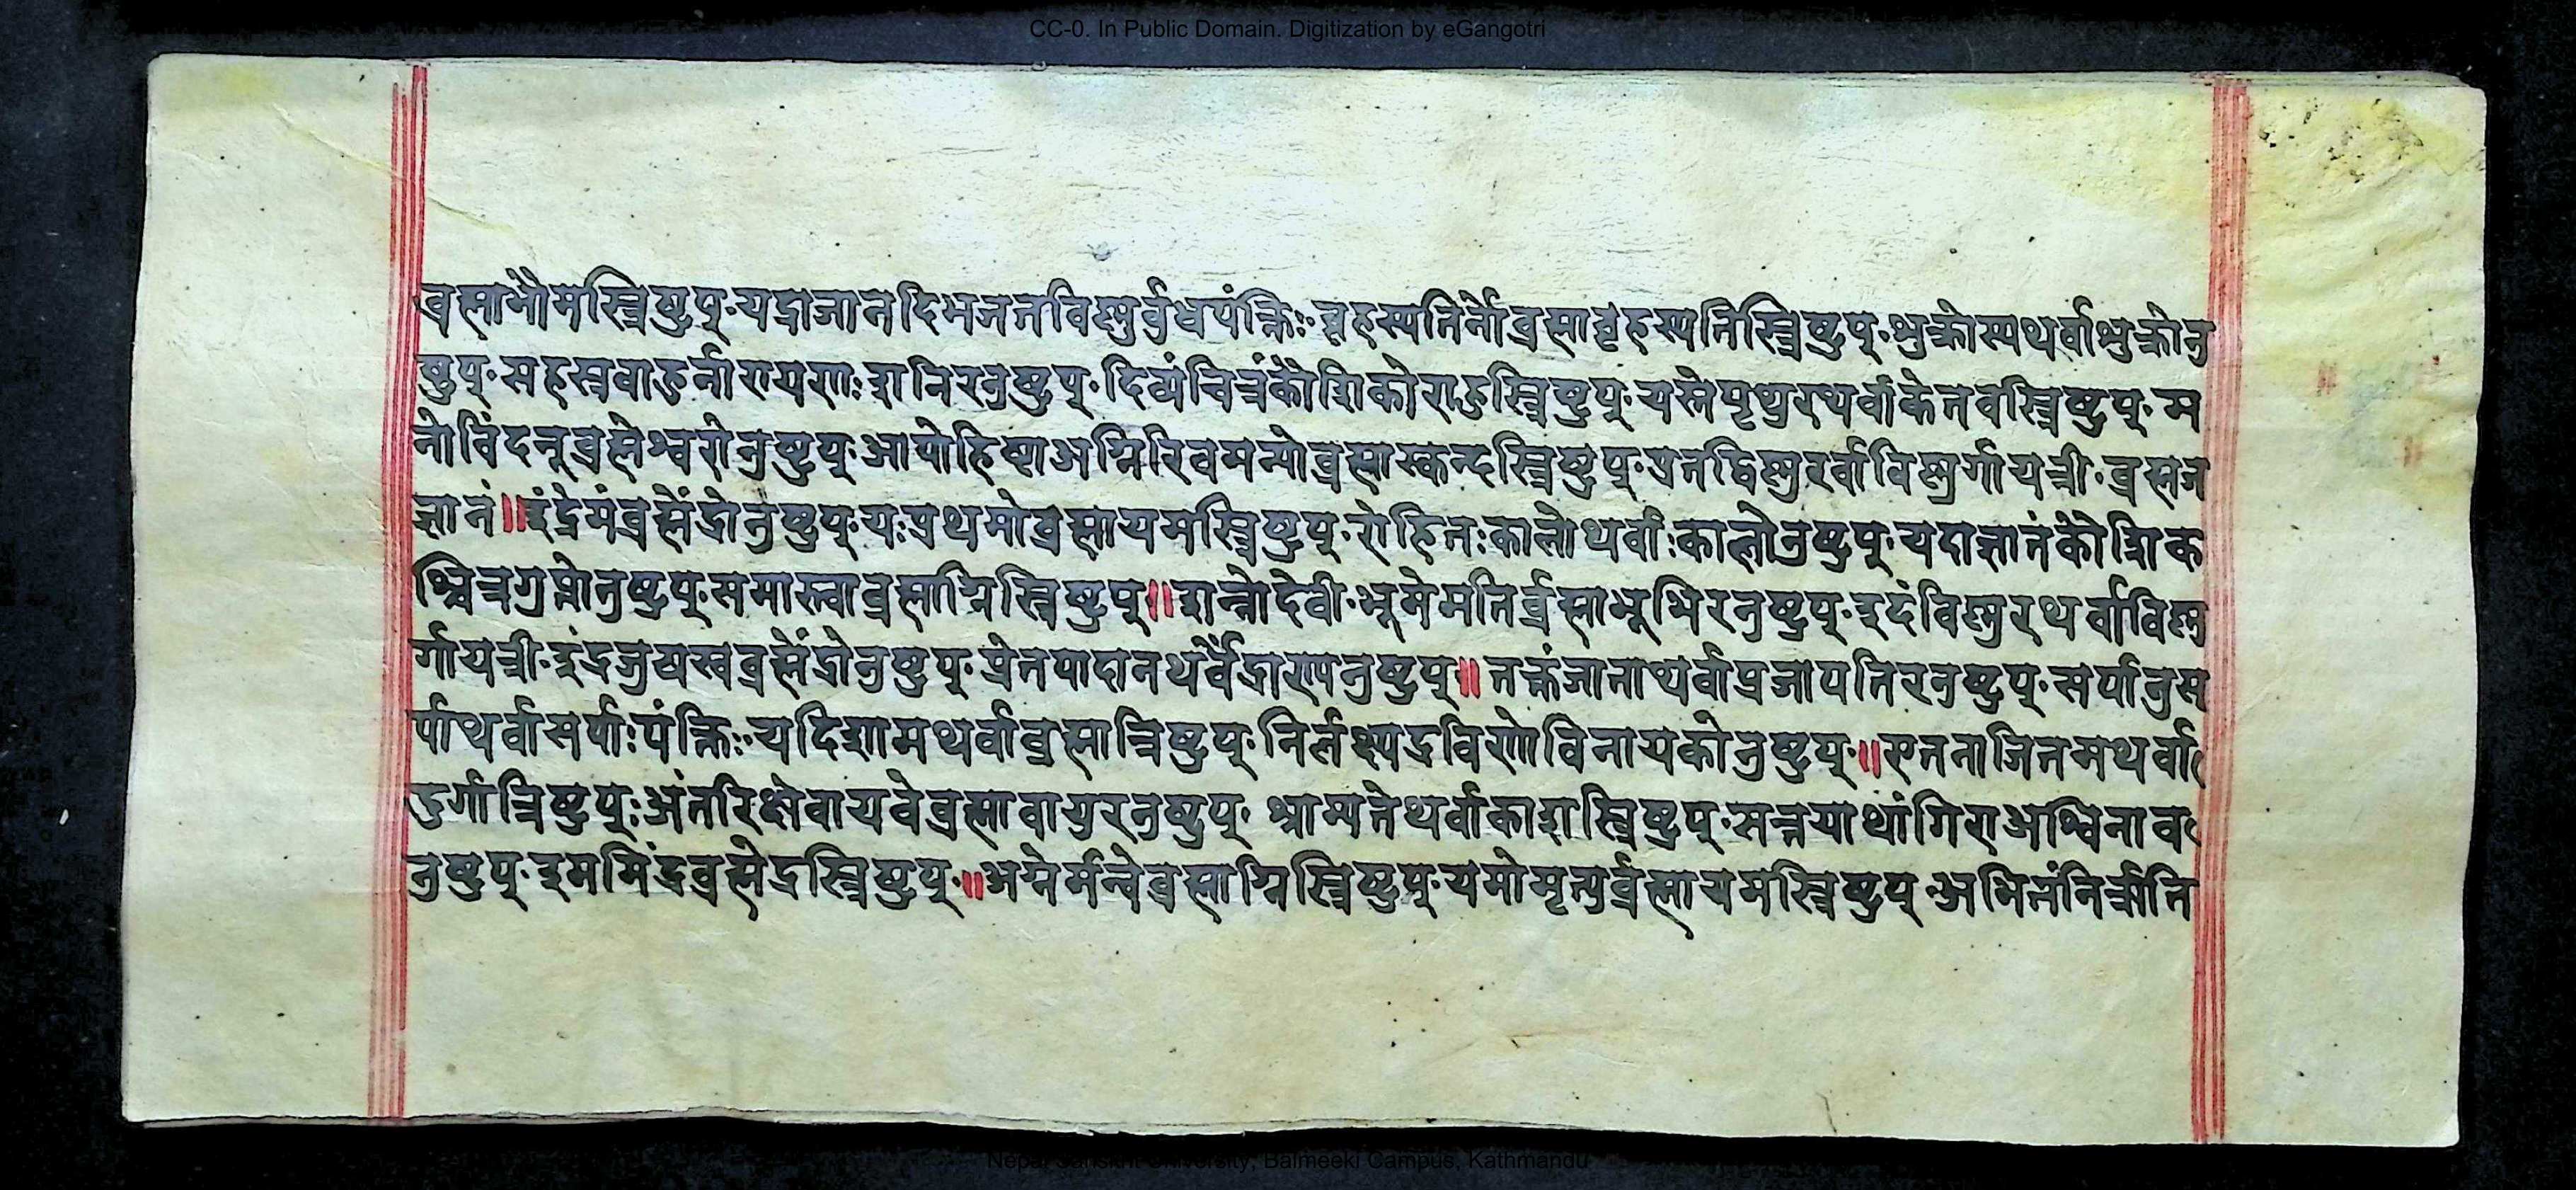 CC-0. In Public Domain. Digitization by eGangotri
ब्रह्माभौमस्त्रिष्टुप्·यद्राजानदिभजतविष्णुर्ब्रध्नपंक्तिः·बृहस्पतिर्नोब्रह्माबृहस्पतिस्त्रिष्टुप्·शुक्रोस्यथर्वाशुक्रोनु
ष्टुप्·सहस्रबाहुर्नारायणःशनिरनुष्टुप्·दिव्यंचित्रंकौशिकोराहुस्त्रिष्टुप्·यस्तेपृथुरथर्वाकेतवस्त्रिष्टुप्·म
नोविंदनूब्रह्मेश्वरोनुष्टुप्·आपोहिष्ठाअग्निरिवमन्योब्रह्मास्कन्दस्त्रिष्टुप्·प्रतद्विष्णुरर्वाविष्णुर्गायत्री·ब्रह्मज
ज्ञानं॥इंद्रेमंब्रह्मेंद्रोनुष्टुप्·यःप्रथमोब्रह्मायमस्त्रिष्टुप्·रोहितःकालोथर्वाःकालोनुष्टुप्·यदाज्ञानंकौशिक
श्चित्रगुप्तोनुष्टुप्·समास्त्वाब्रह्माग्निस्त्रिष्टुप्॥शन्नोदेवी·भूमेमतिर्ब्रह्माभूभिरनुष्टुप्·इदंविष्णुरथर्वाविष्णु
र्गायत्री·इंद्रजुषस्वब्रह्मेंद्रोनुष्टुप्·प्रेतपादानथर्वेंद्राण्यनुष्टुप्॥नक्तंजाताथर्वाप्रजापतिरनुष्टुप्·सर्पानुस
र्पाथर्वासर्पाःपंक्तिः·यदिशामथर्वाब्रह्मात्रिष्टुप्·निर्लक्ष्म्यद्रविणोविनायकोनुष्टुप्·॥एतनाजितमथर्वा
दुर्गात्रिष्टुप्ःअंतरिक्षेवायवेब्रह्मावायुरनुष्टुप्·श्राम्यतेथर्वाकाशस्त्रिष्टुप्·सन्नयाथांगिराअश्विनाव
नुष्टुप्·इममिंद्रब्रह्मेद्रस्त्रिष्टुप्·॥अग्नेर्मन्वेब्रह्माग्निस्त्रिष्टुप्·यमोमृत्युर्ब्रह्मायमस्त्रिष्टुप्·अभितंनिर्ऋति
Nepal Sanskrit University, Balmeeki Campus, Kathmandu